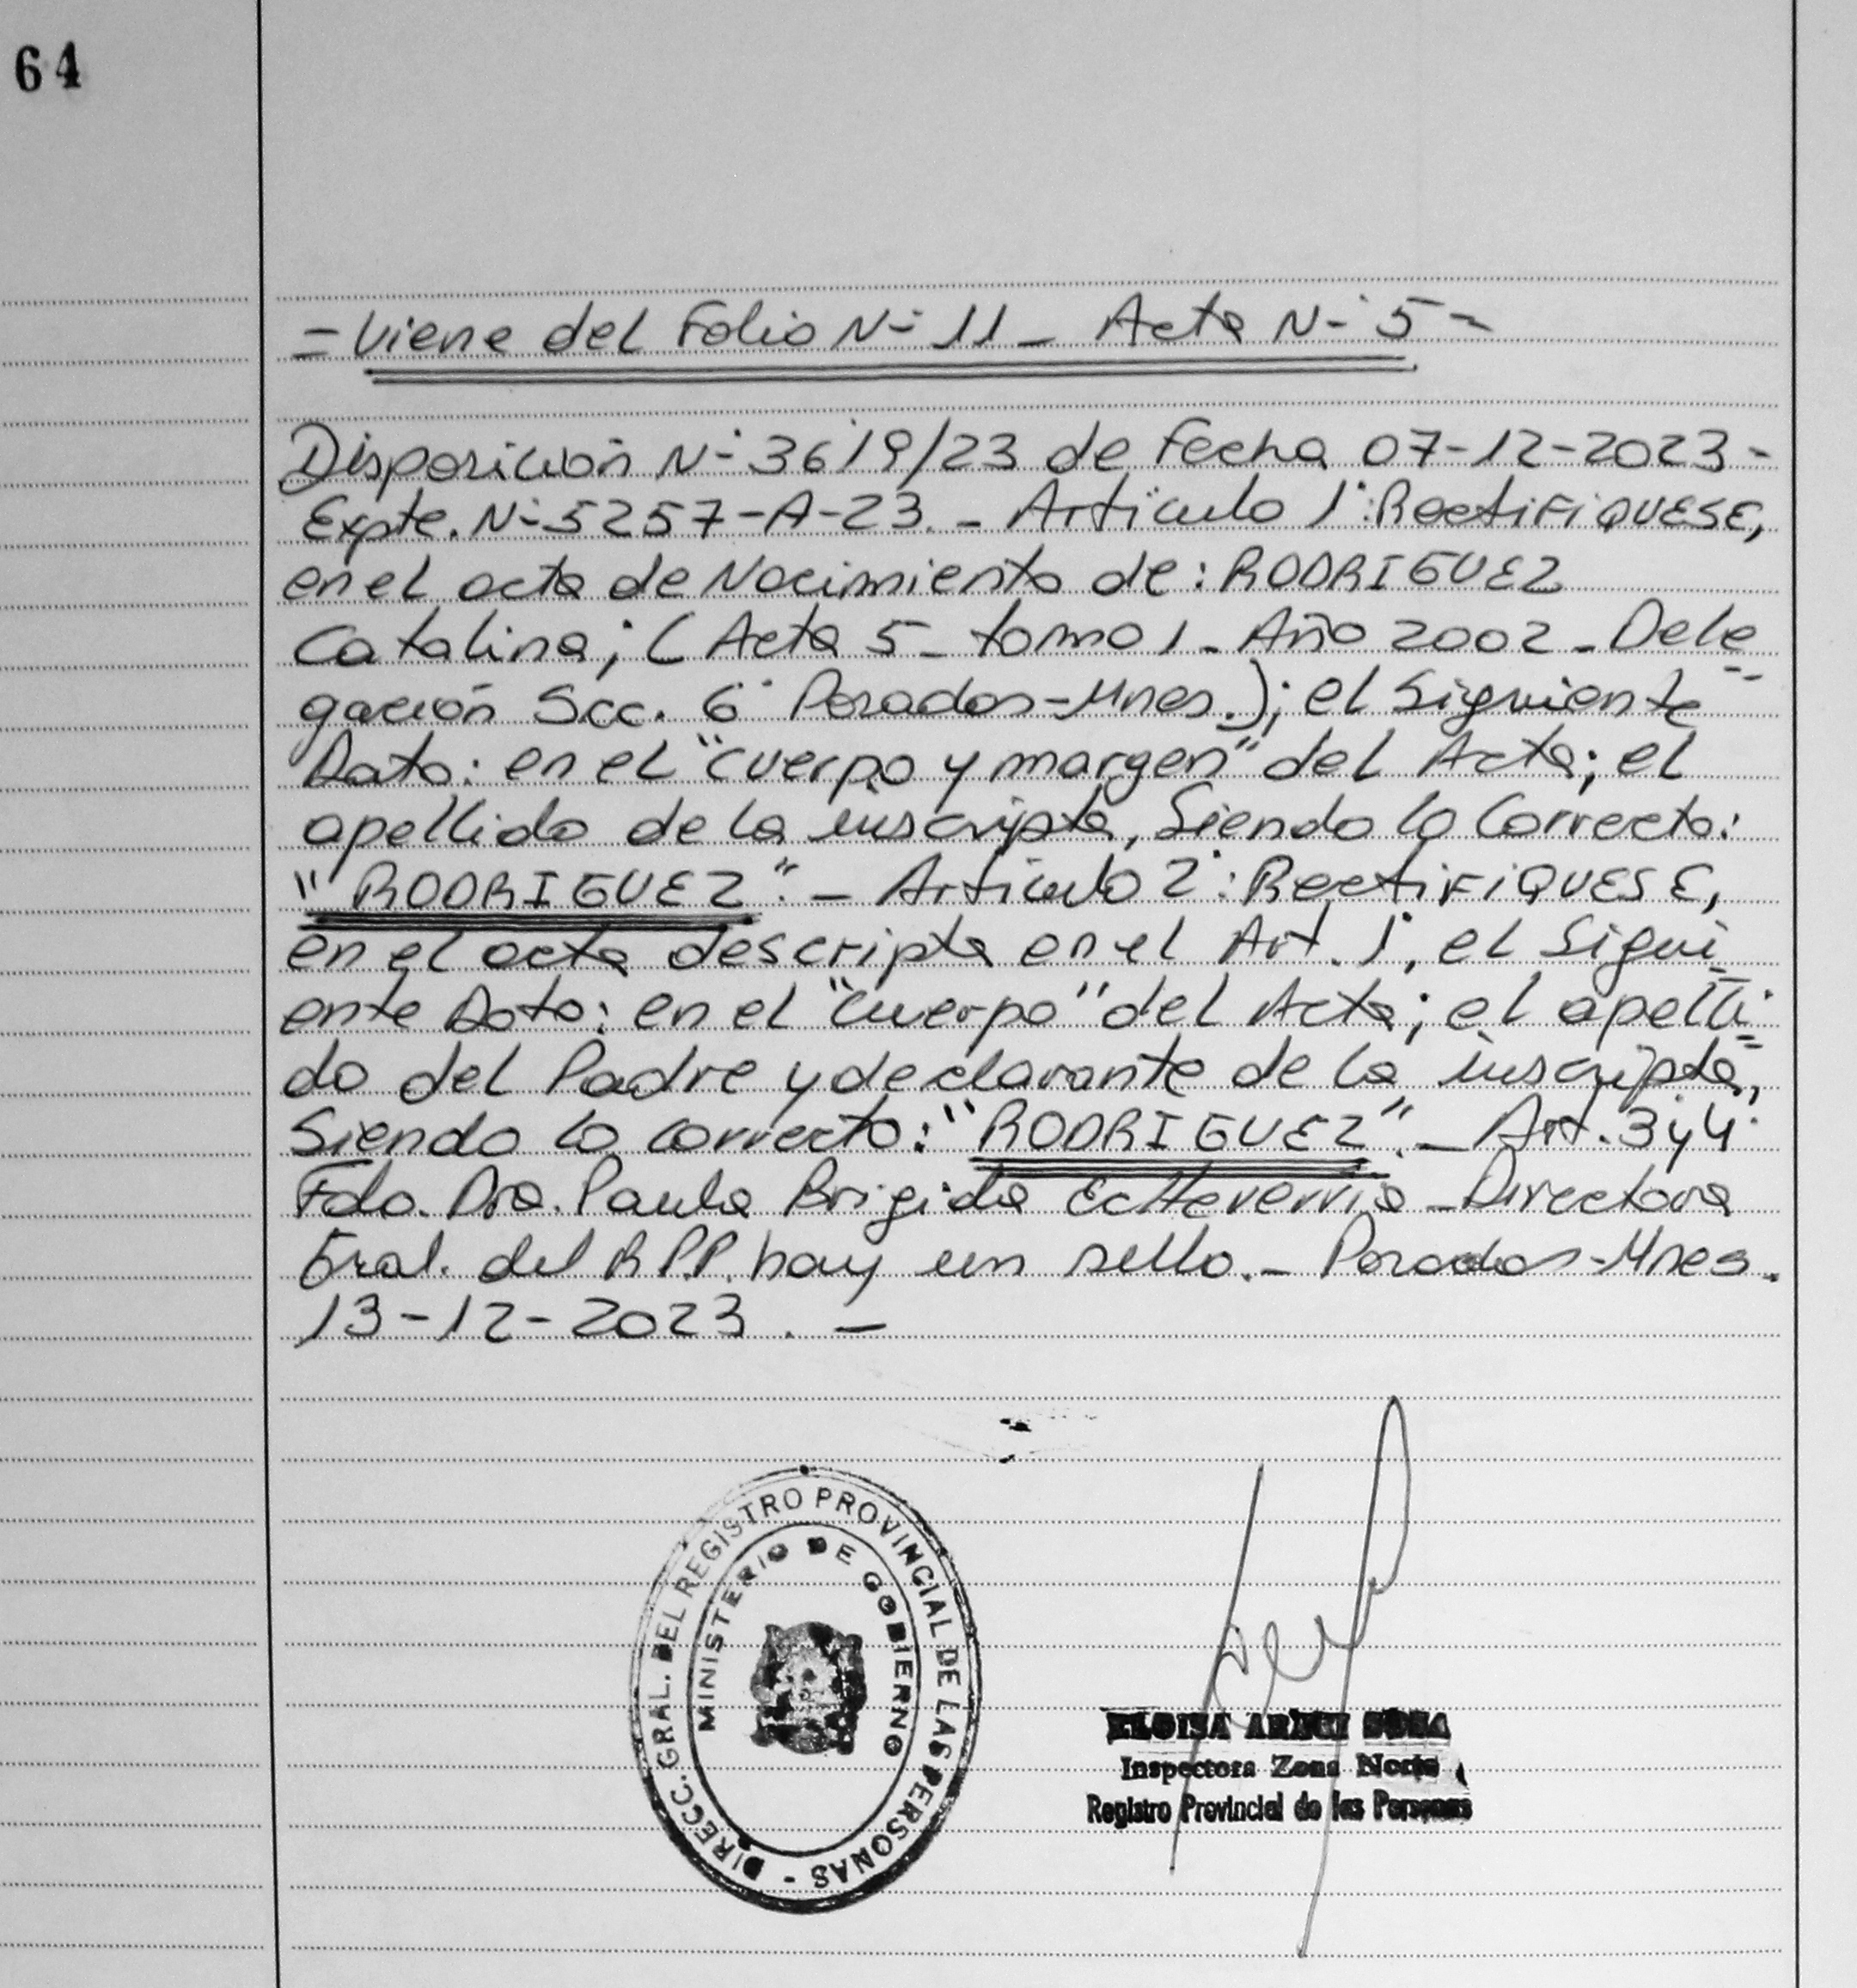 64
= Viene del Folio N° 11 - Acta N° 5 =
Disposición N° 3619/23 de Fecha 07-12-2023 -
Expte. N° 5257-A-23. - Artículo 1°: RectiFiQUESE,
en el acta de Nacimiento de: RODRIGUEZ
Catalina; (Acta 5 - tomo 1 - Año 2002 - Dele
gación Scc. 6° Posadas-Mnes.); el Siguiente
Dato: en el "cuerpo y margen" del Acta; el
apellido de la inscripta, Siendo lo Correcto:
"RODRIGUEZ". - Artículo 2°: RectiFiQUESE,
en el acta descripta en el Art. 1°, el Sigui
ente Dato: en el "Cuerpo" del Acta; el apelli
do del Padre y declarante de la inscripta,
Siendo lo correcto: "RODRIGUEZ". - Art. 3 y 4°
Fdo. Dra. Paula Brigida Echeverria - Directora
Gral. del R.P.P. hay un sello. - Posadas - Mnes.
13-12-2023. -
DIRECC. GRAL. DEL REGISTRO PROVINCIAL DE LAS PERSONAS -
MINISTERIO DE GOBIERNO
ELOISA ARACI SOSA
Inspectora Zona Norte
Registro Provincial de las Personas